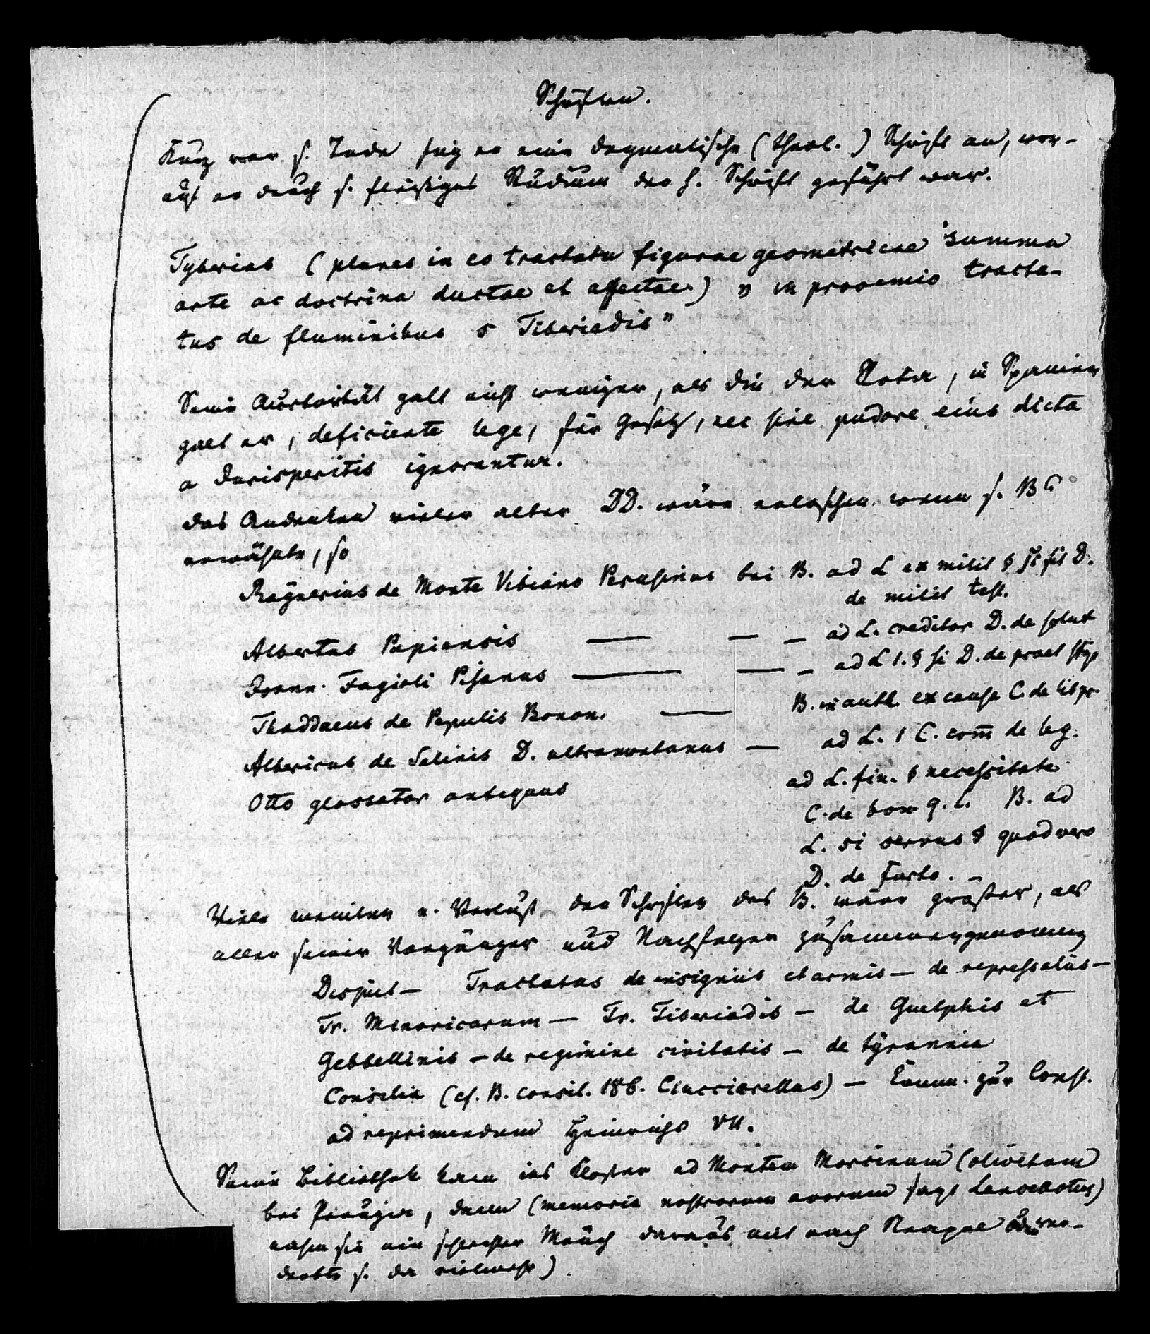 Schriften.
Kurz vor s. Tode fing er eine dogmatische (theol.) Schrift an, wor-
auf er durch s. fleißiges Studium der h. Schrift geführt war.
Tyberias (planes in eo tractatu figurae geometricae summa
arte ac doctrina ductae et affectae) in prooemio tracta-
tus de fluminibus s Tiberiadis"
Seine Auctorität galt nicht weniger, als die der Rota, in Spanien
galt er, deficiente lege, für Gesetz, nec sine pudore eius dicta
a Jurisperitis ignorantur.
das Andenken vieler alter DD. wäre erloschen wenn s. B
erwähnte, so
Raynerius de Monte Vibiano Perusinus bei B. ad L ex milit § D.
de milit test.
Albertus Papiensis — — — ad L. creditor D. de solut
Joann. Fagioli Pisanus — — — ad L 1. § si D. de praet
Thaddaeus de Pepulis Bonon. — B. in auth ex causa C. de lib pr
Albericus de Salinis D. ultramontanus — ad L. 1 C. com̅ de leg.
Otto glossator antiquus ad L. fin. § necessitate
C. de bon q. l. B. ad
L. si servus § quod vero
D. de furto. —
Viele meinten d. Verlust der Schriften des B. wäre großer, als
aller seiner Vorgänger und Nachfolger zusammengenommen
Disput — Tractatus de insigniis et armis — de represaliis —
Tr. Minoricarum — Tr. Tiberiadis — de Guelphis et
Gebbellinis — de regimine civitatis — de tyrannia
Consilia (cf. B. consil. 186. Ciacciarellus) — Comm. zur Const.
ad reprimendum Heinrichs VII.
Seine Bibliothek kam ins Kloster ad Montem Morcinum (olivetum
bei Perugia, denn (memoria nostrorum avorum sagt Lancellotus)
nahm sie ein Mönch daraus mit nach Neapel